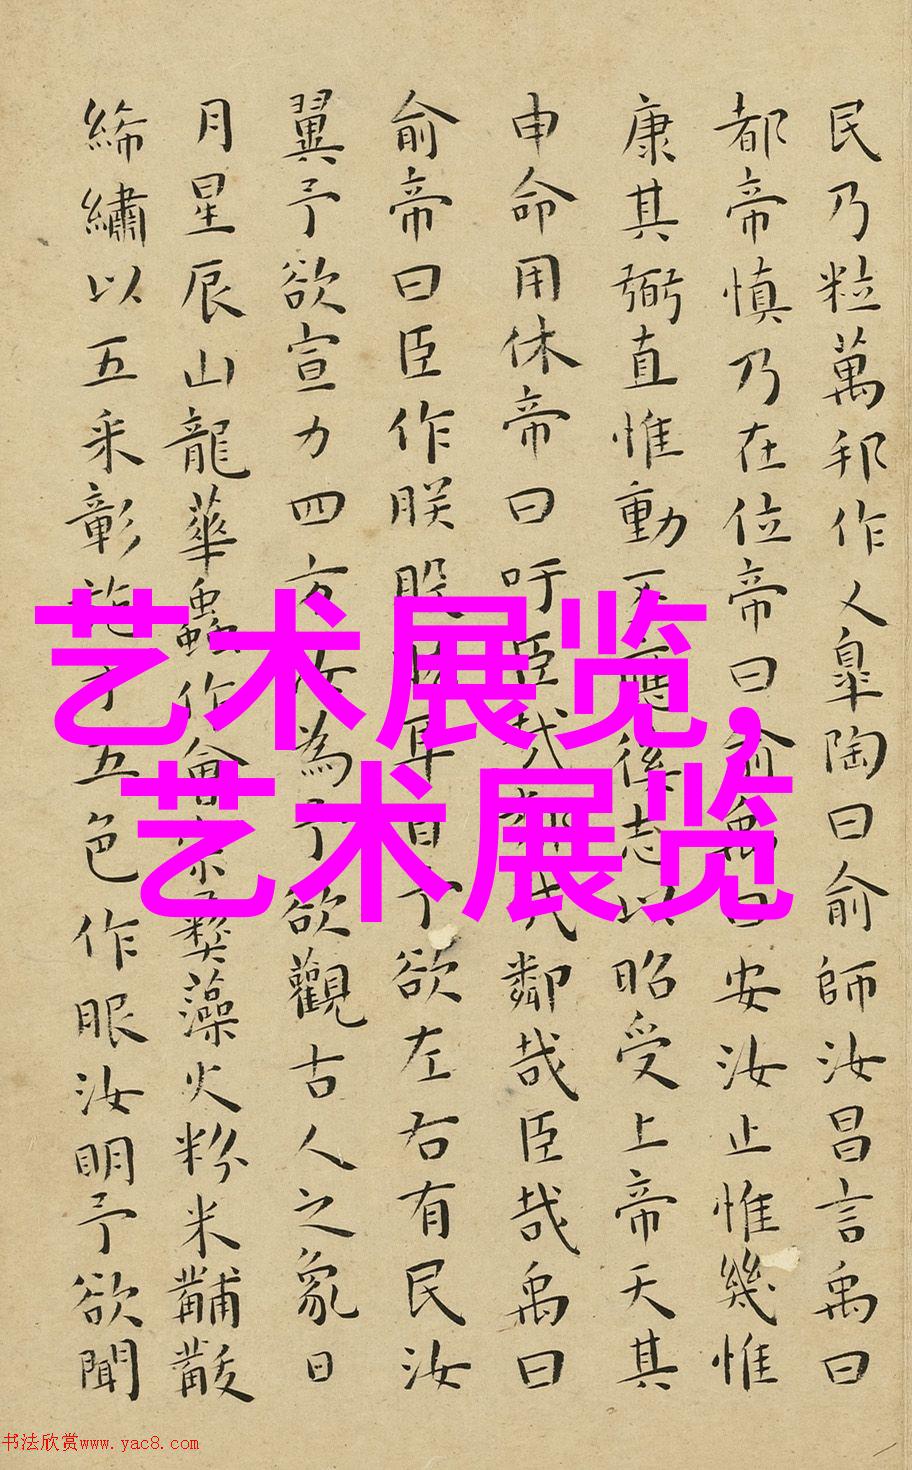 民乃粒萬邦作乂皐陶曰俞師汝昌言禹曰
都帝慎乃在位帝曰俞禹曰安汝止惟幾惟
康其弼直惟動丕應徯志以昭受上帝天其
申命用休帝曰吁臣哉鄰哉鄰哉臣哉禹曰
俞帝曰臣作朕股肱耳目予欲左右有民汝
翼予欲宣力四方汝為予欲觀古人之象日
月星辰山龍華蟲作會宗彝藻火粉米黼黻
絺繡以五采彰施于五色作服汝明予欲聞
艺术展览,
艺术展览
书法欣赏www.yac8.com